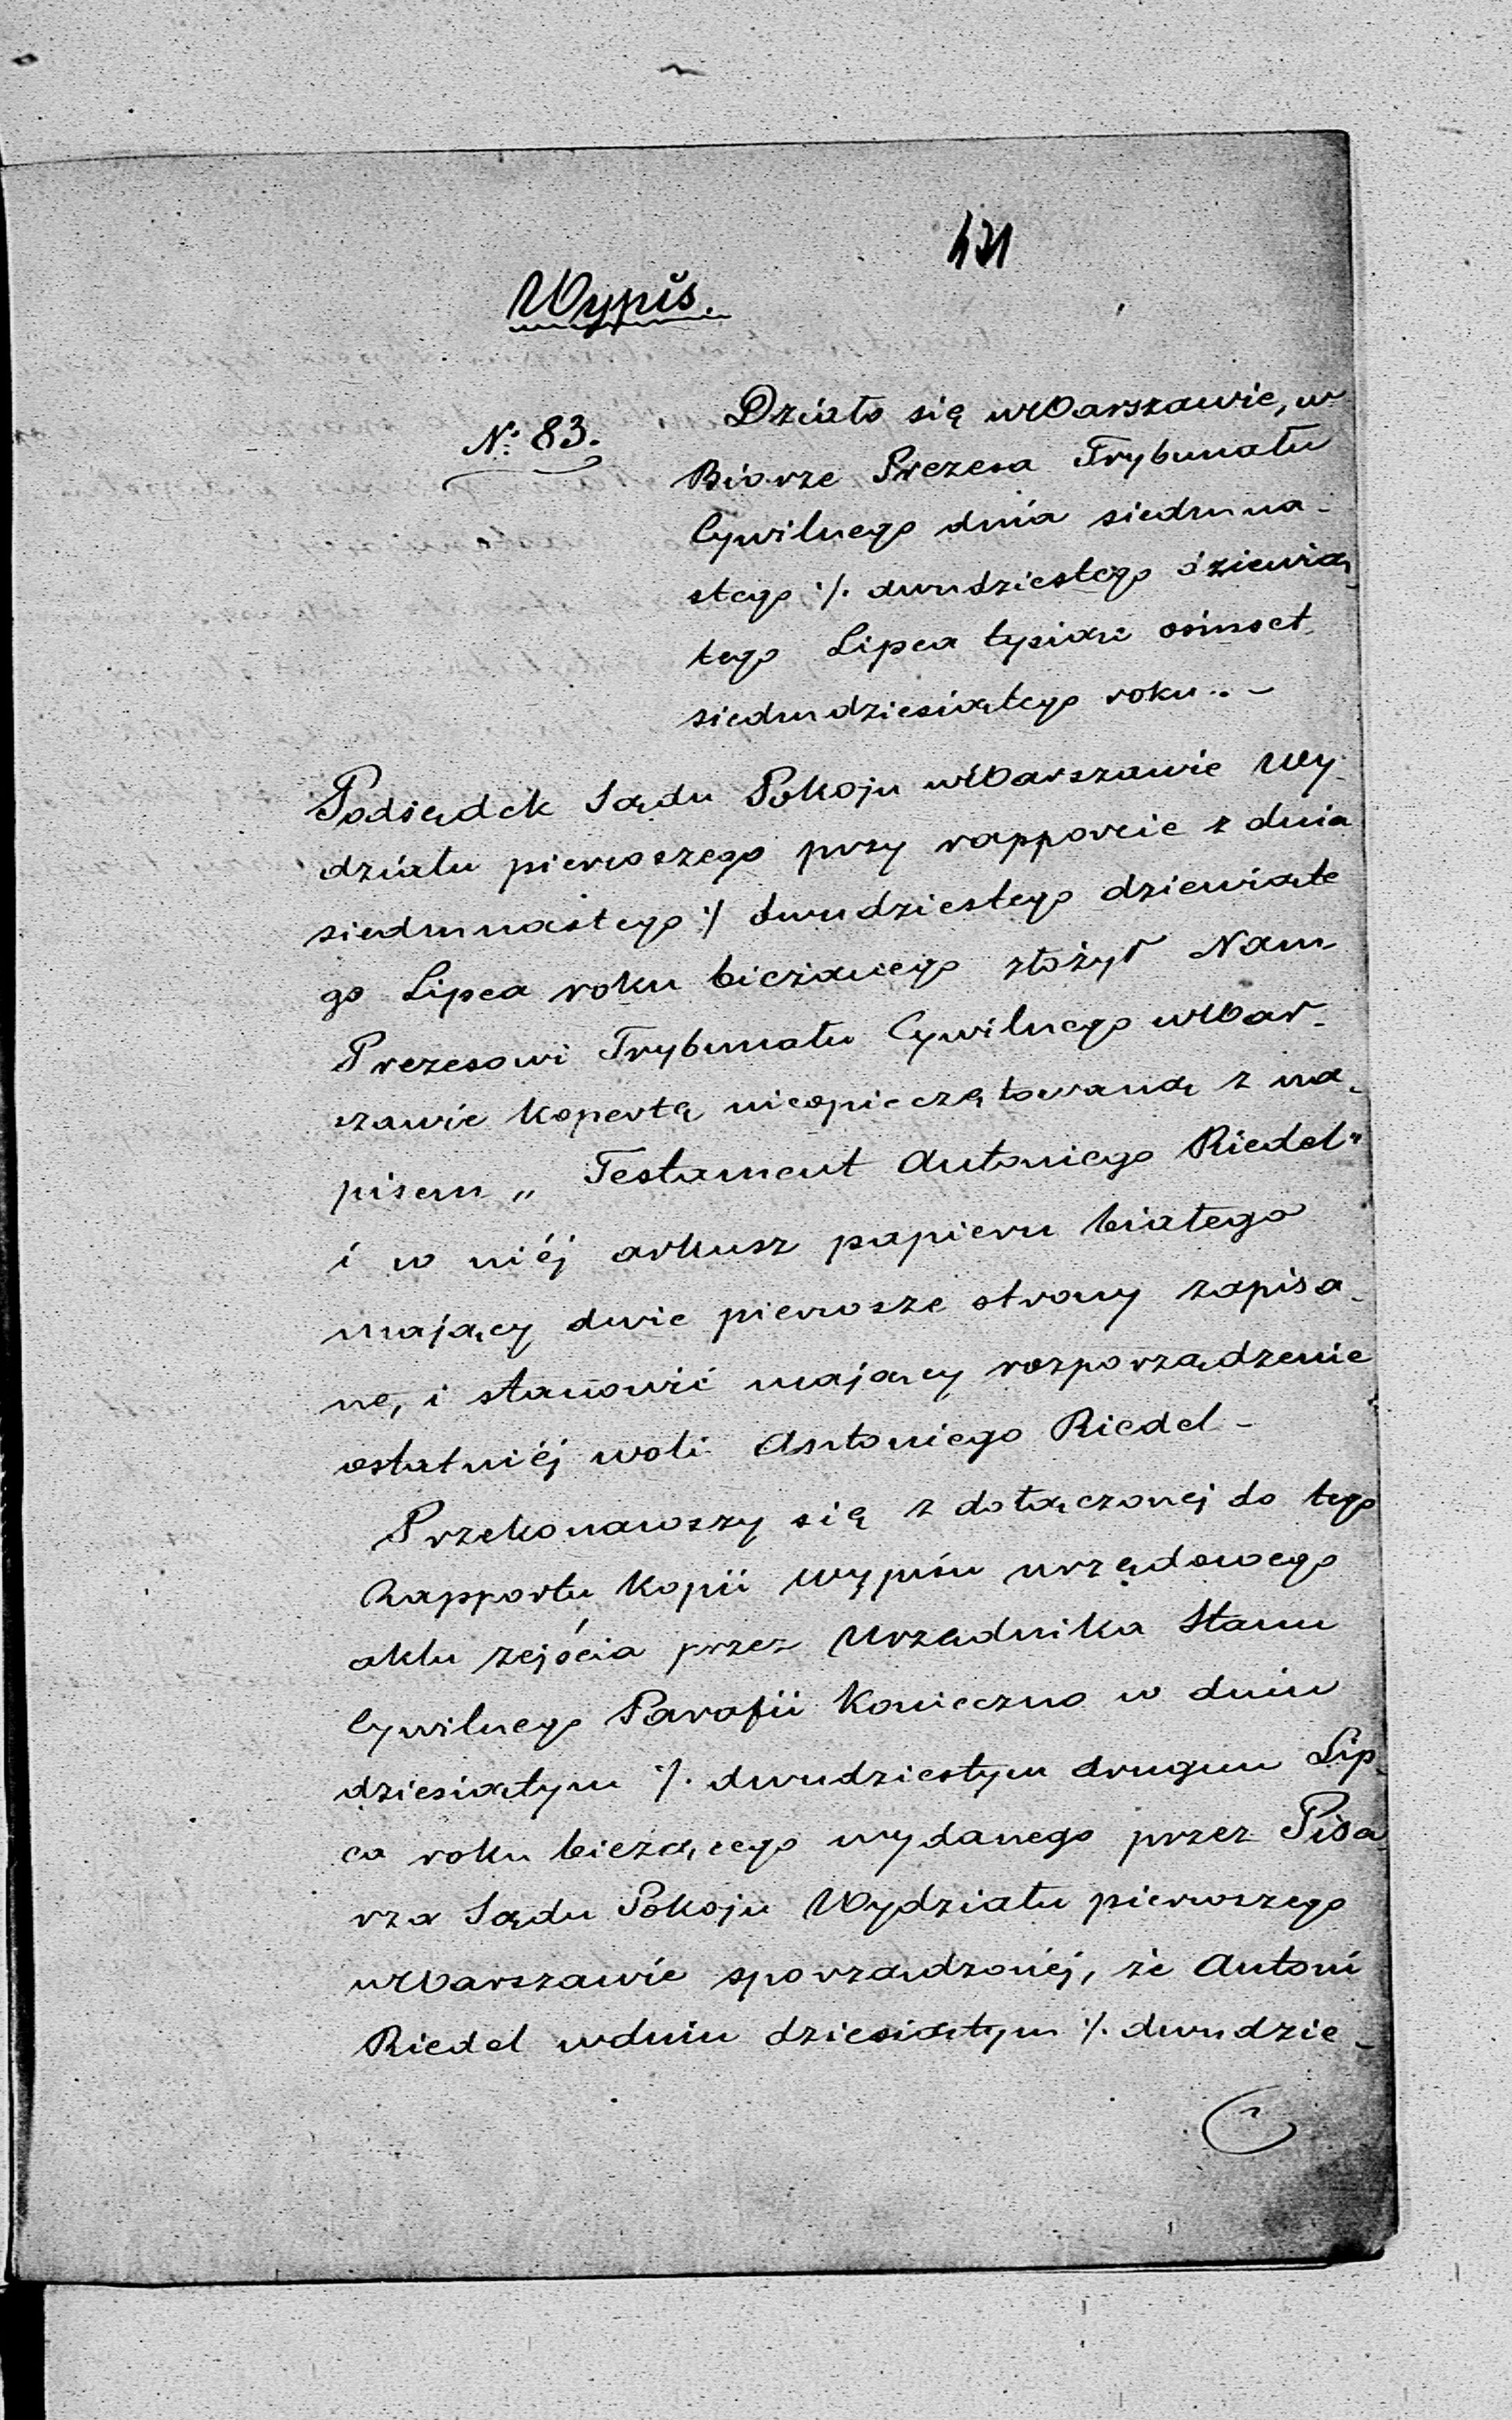 421
Wypis.
N: 83.
Działo się w Warszawie, w
Biórze Prezesa Trybunału
Cywilnego dnia siedmna-
stego ./. dwudziestego dziewią
tego Lipca tysiąc ośmset
siedmdziesiątego roku..-
Podsędek Sądu Pokoju w Warszawie Wy-
działu pierwszego przy rapporcie z dnia
siedmnastego ./ dwudziestego dziewiąte
go Lipca roku bieżącego złożył Nam
Prezesowi Trybunału Cywilnego w War-
szawie kopertę nieopieczętowaną z na-
pisem „ Testament Antoniego Riedel"
i w niéj arkusz papieru białego
mający dwie pierwsze strony zapisa-
ne, i stanowić mający rozporządzenie
ostatniéj woli Antoniego Riedel -
Przekonawszy się z dołączonej do tego
Rapportu kopii wypisu urzędowego
aktu zejścia przez Urzędnika Stanu
Cywilnego Parafii Konieczno w dniu
dziesiątym ./. dwudziestym drugim Lip-
ca roku bieżącego wydanego przez Pisa
rza Sądu Pokoju Wydziału pierwszego
w Warszawie sporządzonéj, że Antoni
Riedel w dniu dziesiątym ./. dwudzie-